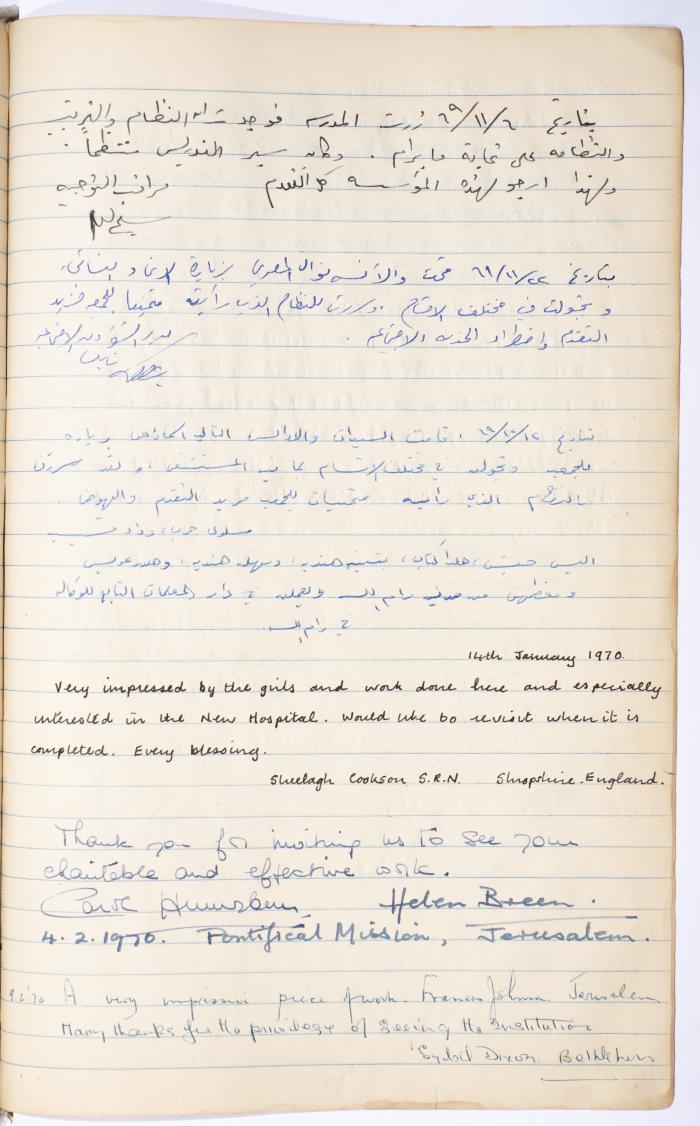 بتاريخ ٦٩/١١/٦ زرت المدرسه فوجدت ان النظام والترتيب
والنظافه على غاية ما يرام . وكان سير التدريس منتظماً .
ولهذا ارجو لهذه المؤسسه كل التقدم مراقب التوجيه
بتاريخ ٦٩/١١/٢٢ قمت والآنسه نوال بزيارة الاتحاد النسائي
وتجولت في مختلف الاقسام . وسررت للنظام الذي رأيته متمنيا للجميع مزيد
التقدم واضطراد الخدمه الاجتماعيه .
مدير الشؤون الاجتماعيه
نابلس
بتاريخ ٦٩/١٢/١٢ . قامت السيدات والاوانس التاليه اسماؤهن بزياره
للجمعيه وتجولن في مختلف الاقسام بما فيه المستشفى ، ولقد سررن
بالنظام الذي رأينه متمنيات للجميع مزيد التقدم والنهوض .
سلوى حرب ، وداد
اليس ، هلدا ، بثينه هنديه ، وسهيله هنديه ،
ومعظمهن من مدينه رام الله ويعملن في دار المعلمات التابع للوكاله
في رام الله .
14th January 1970.
Very impressed by the girls and work done here and especially
interested in the New Hospital. Would like to revisit when it is
completed. Every blessing.
Sheelagh Cookson S.R.N. Shropshire. England.
Thank you for inviting us to see your
charitable and effective work.
Carol Helen Breen.
4.2.1970. Pontifical Mission, Jerusalem.
9.2.'70 A very impressive piece of work. Frances Johnson Jerusalem
Many thanks for the privilege of seeing the Institution
Sybil Dixon Bethlehem